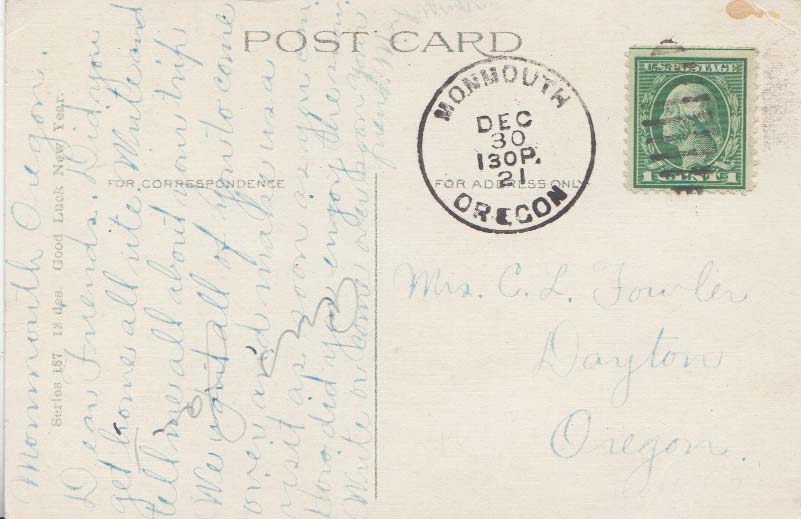 POST CARD
FOR CORRESPONDENCE
FOR ADDRESS ONLY
MONMOUTH
DEC
30
130P.
21
OREGON
U.S. POSTAGE
1 CENT 1
Series 187 12 des. Good Luck New Year.
Monmouth Oregon.
Dear Friends. Did you
get home all rite Write and
tell me all about your trip
We want all of you to come
over and make us a
visit as soon as you can
How did you enjoy the
Write or come
Mrs. C. L. Fowler
Dayton
Oregon.